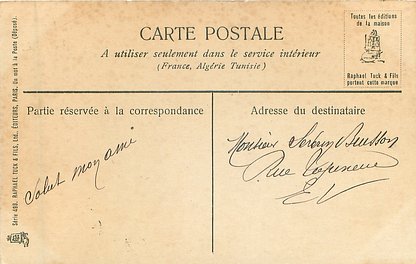 CARTE POSTALE
A utiliser seulement dans le service intérieur
(France, Algérie Tunisie)
Toutes les éditions
de la maison
Raphael Tuck & Fils
portent cette marque
Partie réservée à la correspondance
Adresse du destinataire
Salut mon ami
Monsieur Buisson
Rue
E.V
Série 498. RAPHAEL TUCK & FILS, Ltd. ÉDITEURS, PARIS. Un mot à la Poste (Déposé).